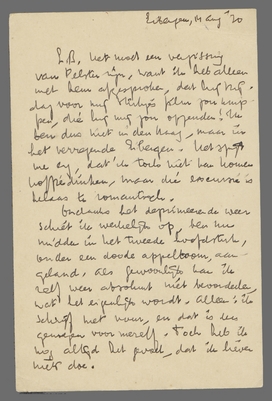 Eibergen, 10 Aug '30
L.B., het moet een vergissing
van Pelster zijn, want ik heb alleen
met hem afgesproken, dat hij mij
dag voor mij
pen, die hij mij zou opzenden. Ik
ben dus niet in den Haag, maar in
het verregende Eibergen. Het spijt
me erg, dat ik toch niet kan komen
koffiedrinken, maar die excursie is
helaas te romantisch.
Ondanks het deprimeerende weer
schiet ik werkelijk op, ben nu
midden in het tweede hoofdstuk,
onder een doode appelboom, aan-
geland. Als gewoonlijk kan ik
zelf weer absoluut niet beoordeelen,
wat het eigenlijk wordt. Alleen: ik
schrijf met vuur, en dat is een
genoegen voor mezelf. Toch heb ik
nog altijd het gevoel, dat ik liever
niets doe.